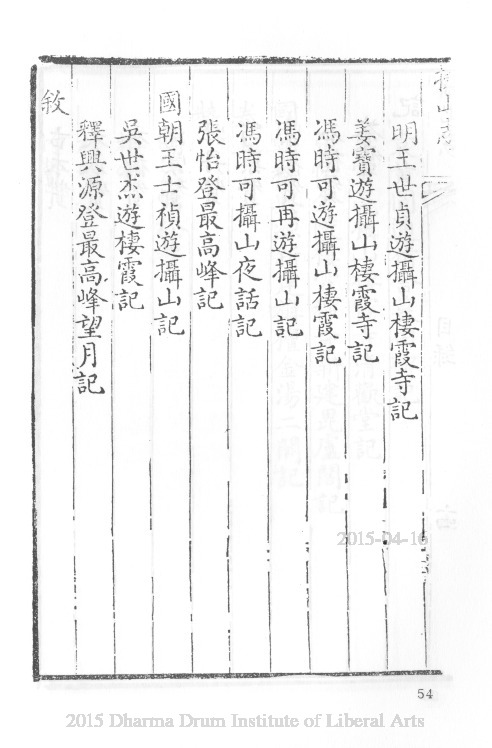 明王世貞遊攝山棲霞寺記
姜寶遊攝山棲霞寺記
馮時可遊攝山棲霞記
馮時可再遊攝山記
馮時可攝山夜話記
張怡登最高峰記
國朝王士禎遊攝山記
吳世杰遊棲霞記
釋興源登最高峰望月記
敘
2015-04-16
54
2015 Dharma Drum Institute of Liberal Arts